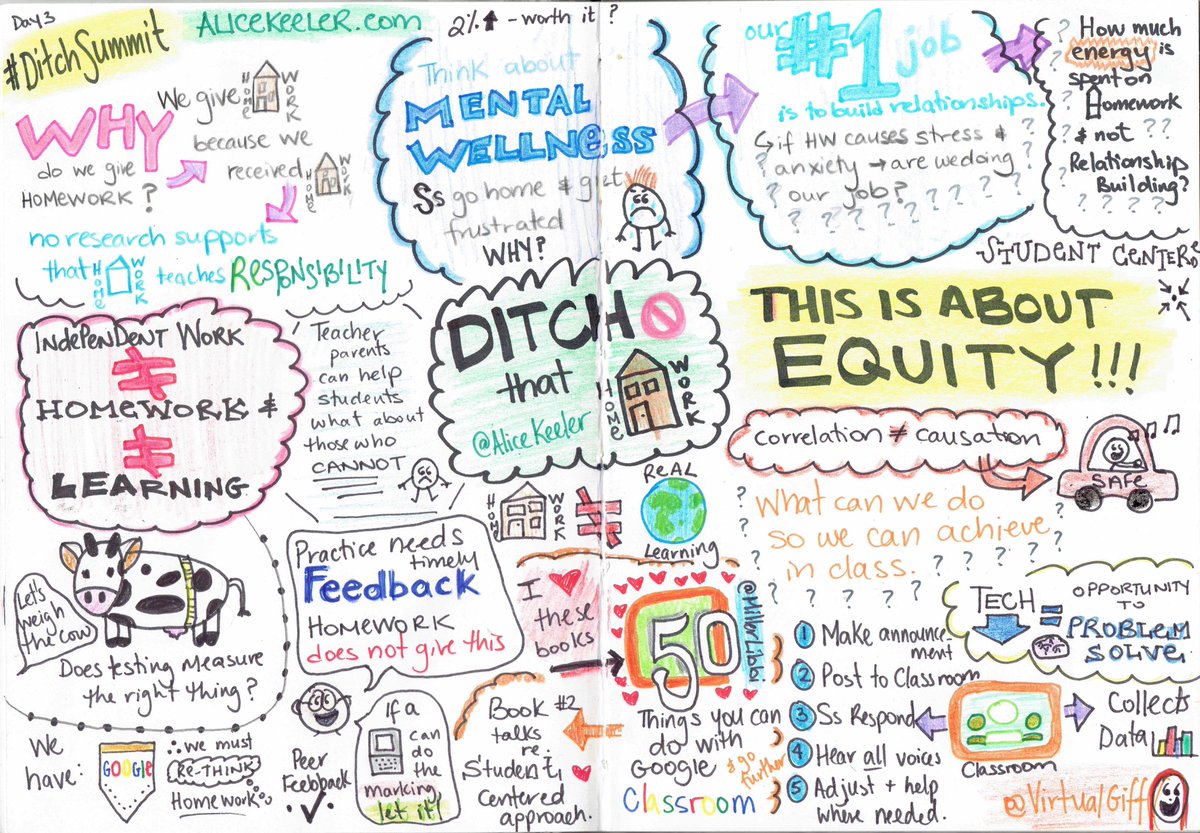 Day 3
#DitchSummit
ALICEKEELER.com
WHY
do we give
HOMEWORK?
We give HOME WORK
because we
received HOME WORK
no research supports
that HOME WORK teaches RESPONSIBILITY
2%↑ - worth it?
Think about
MENTAL
WELLNESS
Ss go home & get
frustrated
WHY?
our #1 job
is to build relationships.
↳ if HW causes stress &
anxiety → are we doing
our job?
? ? ? ? ? ? ? ?
How much
energy is
spent on
Homework
& not ??
Relationship
Building?
? ? ? ?
STUDENT CENTERED
INDEPENDENT WORK
≠
HOMEWORK &
≠
LEARNING
Teacher
parents
can help
students
what about
those who
CANNOT
DITCH
that
HOME WORK
@AliceKeeler
THIS IS ABOUT
EQUITY!!!
correlation ≠ causation
SAFE
HOME WORK ≠ REAL
Learning
What can we do
so we can achieve
in class.
Let's
weigh
the cow
Does testing measure
the right thing?
Practice needs
timely
Feedback
HOMEWORK
does not give this
I ♥
these
books
50
@MillerLibbi
Things you can
do with
Google & go further
Classroom
1 Make announce-
ment
2 Post to Classroom
3 Ss Respond
4 Hear all voices
5 Adjust + help
where needed.
TECH = OPPORTUNITY
TO
PROBLEM
SOLVE
Classroom
Collects
Data
@VirtualGiff
We
have:
GOOGLE
∴ we must
RE-THINK
Homework
Peer
Feebback
✓
If a
can
do the
marking
let it!
Book #2
talks
re.
Student
centered
approach.